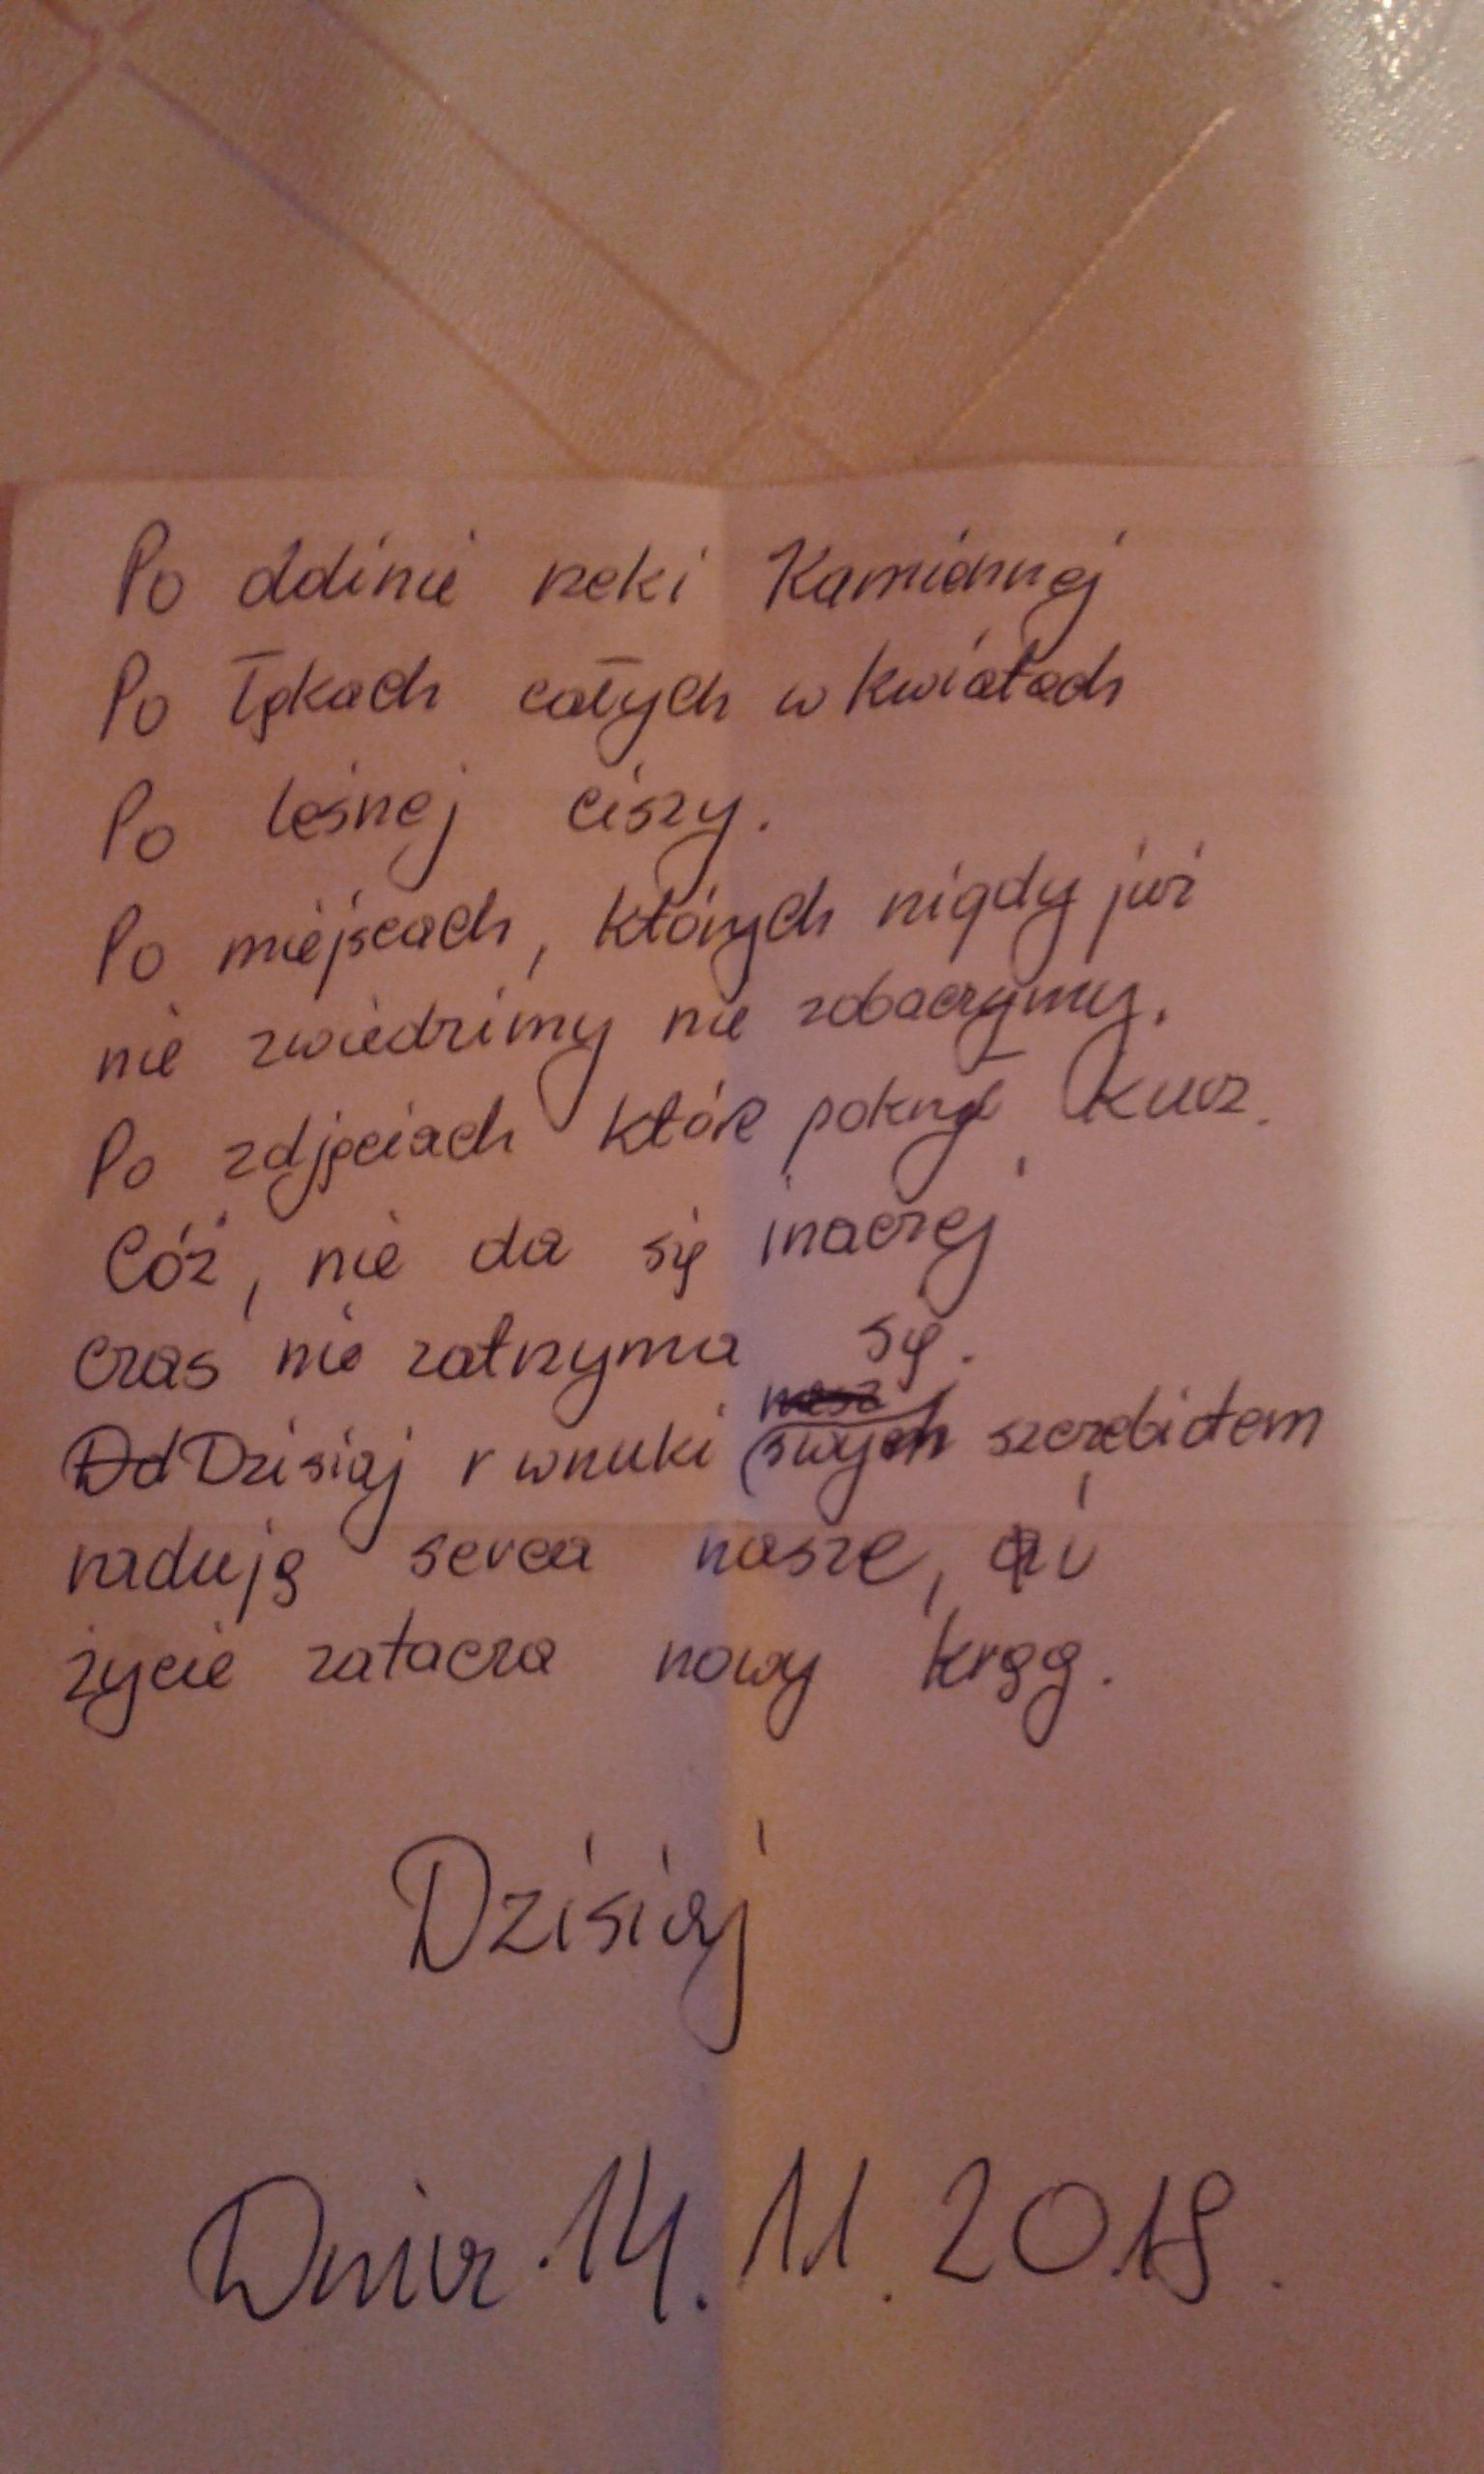 Po dolinie rzeki Kamiennej
Po łąkach całych w kwiatach
Po leśnej ciszy.
Po miejscach, których nigdy już
nie zwiedzimy nie zobaczymy.
Po zdjęciach które pokrył kurz.
Cóż, nie da się inaczej
czas nie zatrzyma się.
Dzisiaj wnuki swych szczebiotem
radują serca nasze, i
życie zatacza nowy krąg.
Dzisiaj
Dnia 14. 11. 2018.